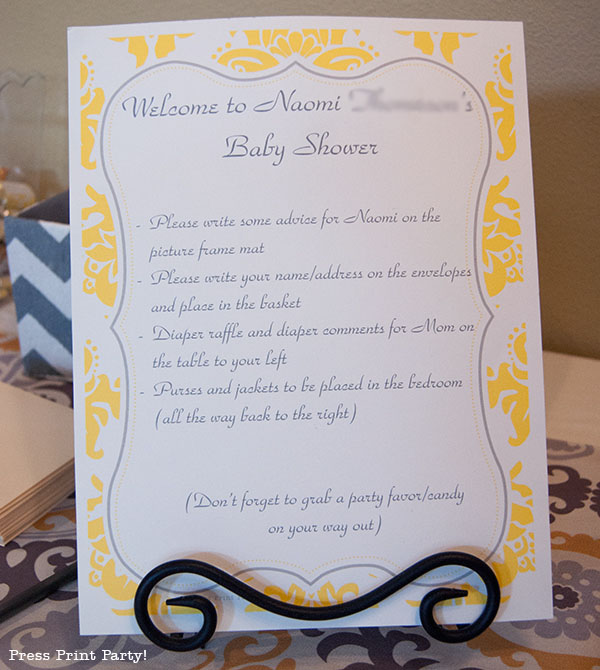 Welcome to Naomi 's
Baby Shower
- Please write some advice for Naomi on the
picture frame mat
- Please write your name/address on the envelopes
and place in the basket
- Diaper raffle and diaper comments for Mom on
the table to your left
- Purses and jackets to be placed in the bedroom
(all the way back to the right)
(Don't forget to grab a party favor/candy
on your way out)
Press Print Party!